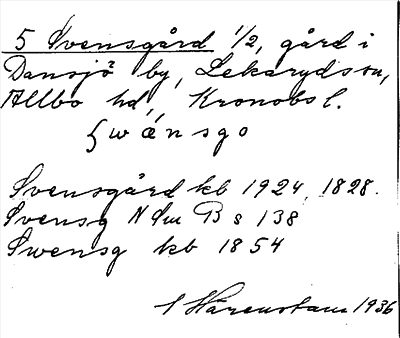 5 Svensgård 1/2, gård i
Dansjö by, Lekaryds sn,
Allbo hd, Kronobs l.
swénsgo
Svensgård kb 1924, 1828.
Svensg N Sm B s 138
Swensg kb 1854
S Härenstam 1936